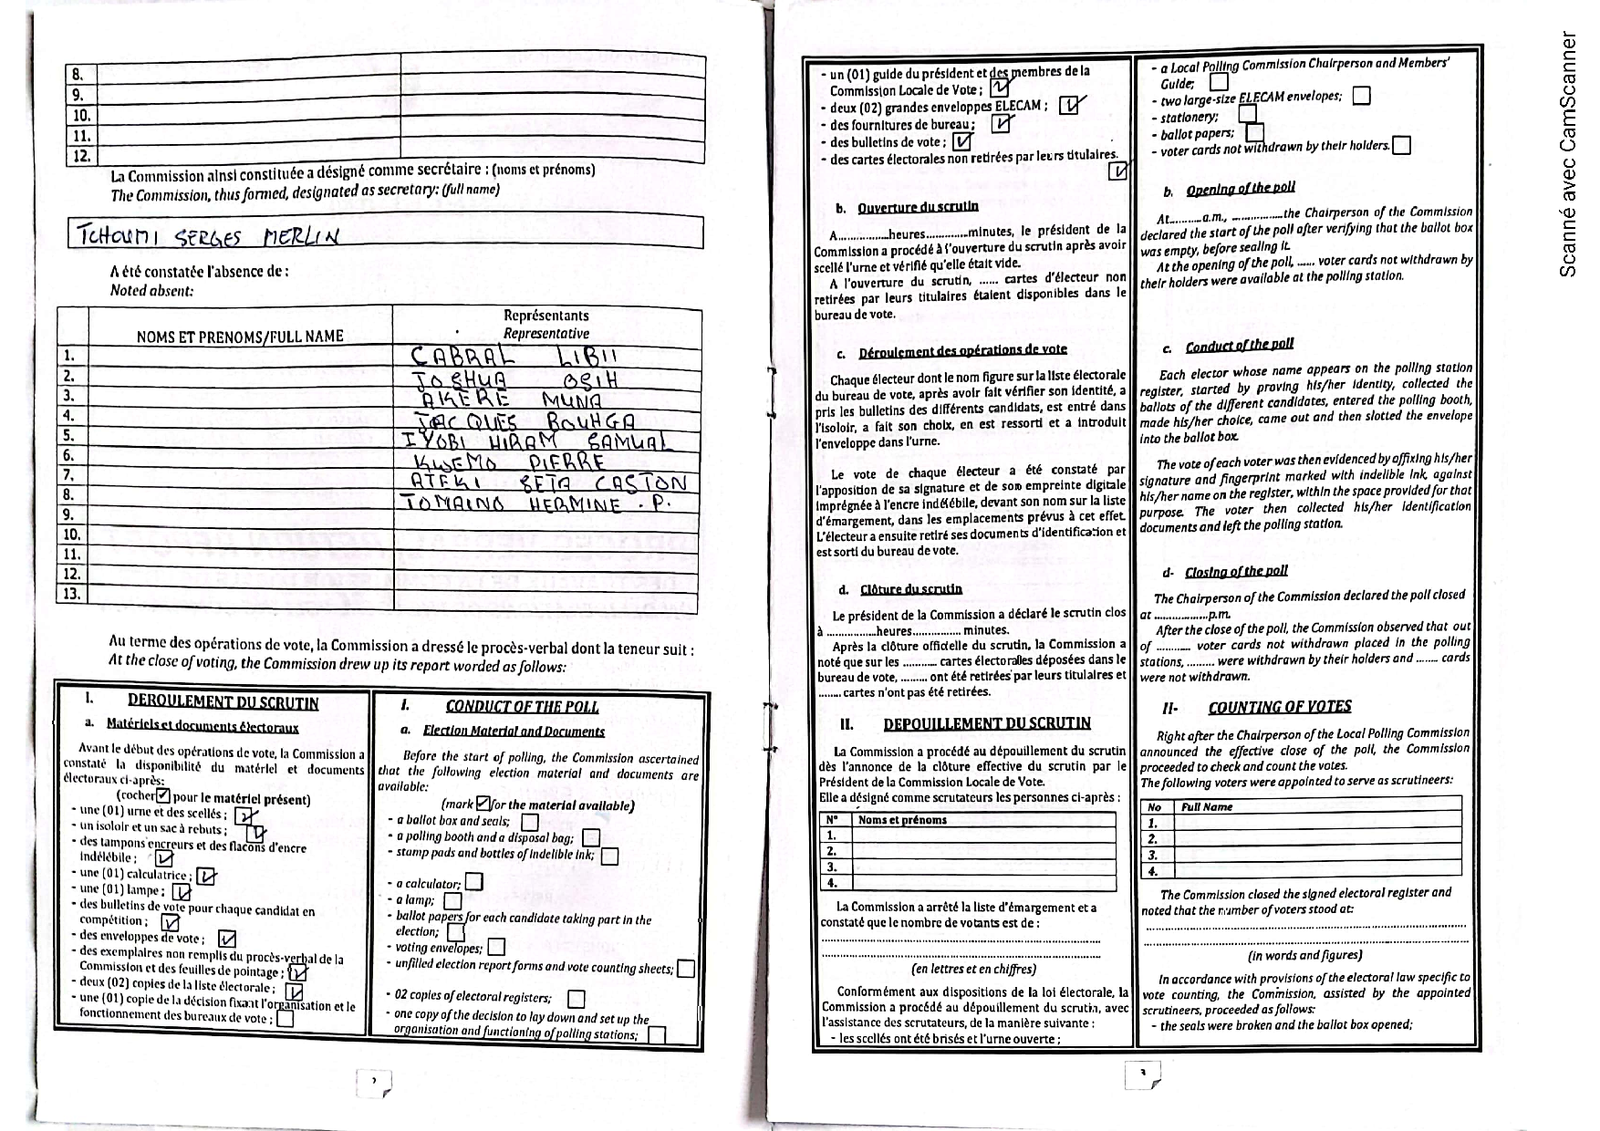 8.
9.
10.
11.
12.
La Commission ainsi constituée a désigné comme secrétaire : (noms et prénoms)
The Commission, thus formed, designated as secretary: (full name)
TCHOUMI SERGES MERLIN
A été constatée l'absence de :
Noted absent:
NOMS ET PRENOMS/FULL NAME
Représentants
Representative
1. CABRAL LIBII
2. JOSHUA OSIH
3. AKERE MUNA
4. JACQUES BOUHGA
5. IYOBI HIRAM SAMUAL
6. KWEMO PIERRE
7. ATEKI SETA CASTON
8. TOMAINO HERMINE . P.
9.
10.
11.
12.
13.
Au terme des opérations de vote, la Commission a dressé le procès-verbal dont la teneur suit :
At the close of voting, the Commission drew up its report worded as follows:
I. DEROULEMENT DU SCRUTIN
a. Matériels et documents électoraux
Avant le début des opérations de vote, la Commission a
constaté la disponibilité du matériel et documents
électoraux ci-après:
(cocher ✓ pour le matériel présent)
- une (01) urne et des scellés ;
- un isoloir et un sac à rebuts ;
- des tampons encreurs et des flacons d'encre
indélébile ;
- une (01) calculatrice ;
- une (01) lampe ;
- des bulletins de vote pour chaque candidat en
compétition ;
- des enveloppes de vote ;
- des exemplaires non remplis du procès-verbal de la
Commission et des feuilles de pointage ;
- deux (02) copies de la liste électorale ;
- une (01) copie de la décision fixant l'organisation et le
fonctionnement des bureaux de vote ;
I. CONDUCT OF THE POLL
a. Election Material and Documents
Before the start of polling, the Commission ascertained
that the following election material and documents are
available:
(mark ✓ for the material available)
- a ballot box and seals;
- a polling booth and a disposal bag;
- stamp pads and bottles of indelible ink;
- a calculator;
- a lamp;
- ballot papers for each candidate taking part in the
election;
- voting envelopes;
- unfilled election report forms and vote counting sheets;
- 02 copies of electoral registers;
- one copy of the decision to lay down and set up the
organisation and functioning of polling stations;
- un (01) guide du président et des membres de la
Commission Locale de Vote ;
- deux (02) grandes enveloppes ELECAM ;
- des fournitures de bureau ;
- des bulletins de vote ;
- des cartes électorales non retirées par leurs titulaires.
b. Ouverture du scrutin
A...............heures.............minutes, le président de la
Commission a procédé à l'ouverture du scrutin après avoir
scellé l'urne et vérifié qu'elle était vide.
A l'ouverture du scrutin, ...... cartes d'électeur non
retirées par leurs titulaires étaient disponibles dans le
bureau de vote.
c. Déroulement des opérations de vote
Chaque électeur dont le nom figure sur la liste électorale
du bureau de vote, après avoir fait vérifier son identité, a
pris les bulletins des différents candidats, est entré dans
l'isoloir, a fait son choix, en est ressorti et a introduit
l'enveloppe dans l'urne.
Le vote de chaque électeur a été constaté par
l'apposition de sa signature et de son empreinte digitale
imprégnée à l'encre indélébile, devant son nom sur la liste
d'émargement, dans les emplacements prévus à cet effet.
L'électeur a ensuite retiré ses documents d'identification et
est sorti du bureau de vote.
d. Clôture du scrutin
Le président de la Commission a déclaré le scrutin clos
à ...............heures............... minutes.
Après la clôture officielle du scrutin, la Commission a
noté que sur les ........... cartes électorales déposées dans le
bureau de vote, ......... ont été retirées par leurs titulaires et
........ cartes n'ont pas été retirées.
II. DEPOUILLEMENT DU SCRUTIN
La Commission a procédé au dépouillement du scrutin
dès l'annonce de la clôture effective du scrutin par le
Président de la Commission Locale de Vote.
Elle a désigné comme scrutateurs les personnes ci-après :
N° Noms et prénoms
1.
2.
3.
4.
La Commission a arrêté la liste d'émargement et a
constaté que le nombre de votants est de :
(en lettres et en chiffres)
Conformément aux dispositions de la loi électorale, la
Commission a procédé au dépouillement du scrutin, avec
l'assistance des scrutateurs, de la manière suivante :
- les scellés ont été brisés et l'urne ouverte ;
- a Local Polling Commission Chairperson and Members'
Guide;
- two large-size ELECAM envelopes;
- stationery;
- ballot papers;
- voter cards not withdrawn by their holders.
b. Opening of the poll
At..........a.m., ...............the Chairperson of the Commission
declared the start of the poll after verifying that the ballot box
was empty, before sealing it.
At the opening of the poll, ...... voter cards not withdrawn by
their holders were available at the polling station.
c. Conduct of the poll
Each elector whose name appears on the polling station
register, started by proving his/her identity, collected the
ballots of the different candidates, entered the polling booth,
made his/her choice, came out and then slotted the envelope
into the ballot box.
The vote of each voter was then evidenced by affixing his/her
signature and fingerprint marked with indelible ink, against
his/her name on the register, within the space provided for that
purpose. The voter then collected his/her identification
documents and left the polling station.
d- Closing of the poll
The Chairperson of the Commission declared the poll closed
at ................p.m.
After the close of the poll, the Commission observed that out
of .......... voter cards not withdrawn placed in the polling
stations, ......... were withdrawn by their holders and ....... cards
were not withdrawn.
II- COUNTING OF VOTES
Right after the Chairperson of the Local Polling Commission
announced the effective close of the poll, the Commission
proceeded to check and count the votes.
The following voters were appointed to serve as scrutineers:
No Full Name
1.
2.
3.
4.
The Commission closed the signed electoral register and
noted that the number of voters stood at:
(in words and figures)
In accordance with provisions of the electoral law specific to
vote counting, the Commission, assisted by the appointed
scrutineers, proceeded as follows:
- the seals were broken and the ballot box opened;
3
Scanné avec CamScanner